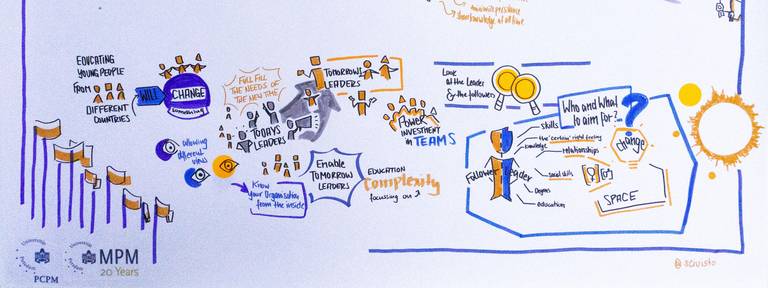 minimize presidence
share knowledge of all time
EDUCATING
YOUNG PEOPLE
FROM
DIFFERENT
COUNTRIES
WILL
CHANGE
something
allowing
different
views
FULL FILL
THE NEEDS OF
THE NEW TIME
TODAYS
LEADERS
TOMORROWS
LEADERS
POWER
INVESTMENT
IN TEAMS
Know
your Organisation
from the inside
Enable
TOMORROW
LEADERS
EDUCATION
Complexity
focussing on
Look
at the leader
& the followers
Who and What
to aim for?...
?
skills
the "certain" right feeling
knowledge
relationships
change
Follower Leader
social skills
Degrees
education
SPACE
PCPM
MPM
20 Years
@scivisto